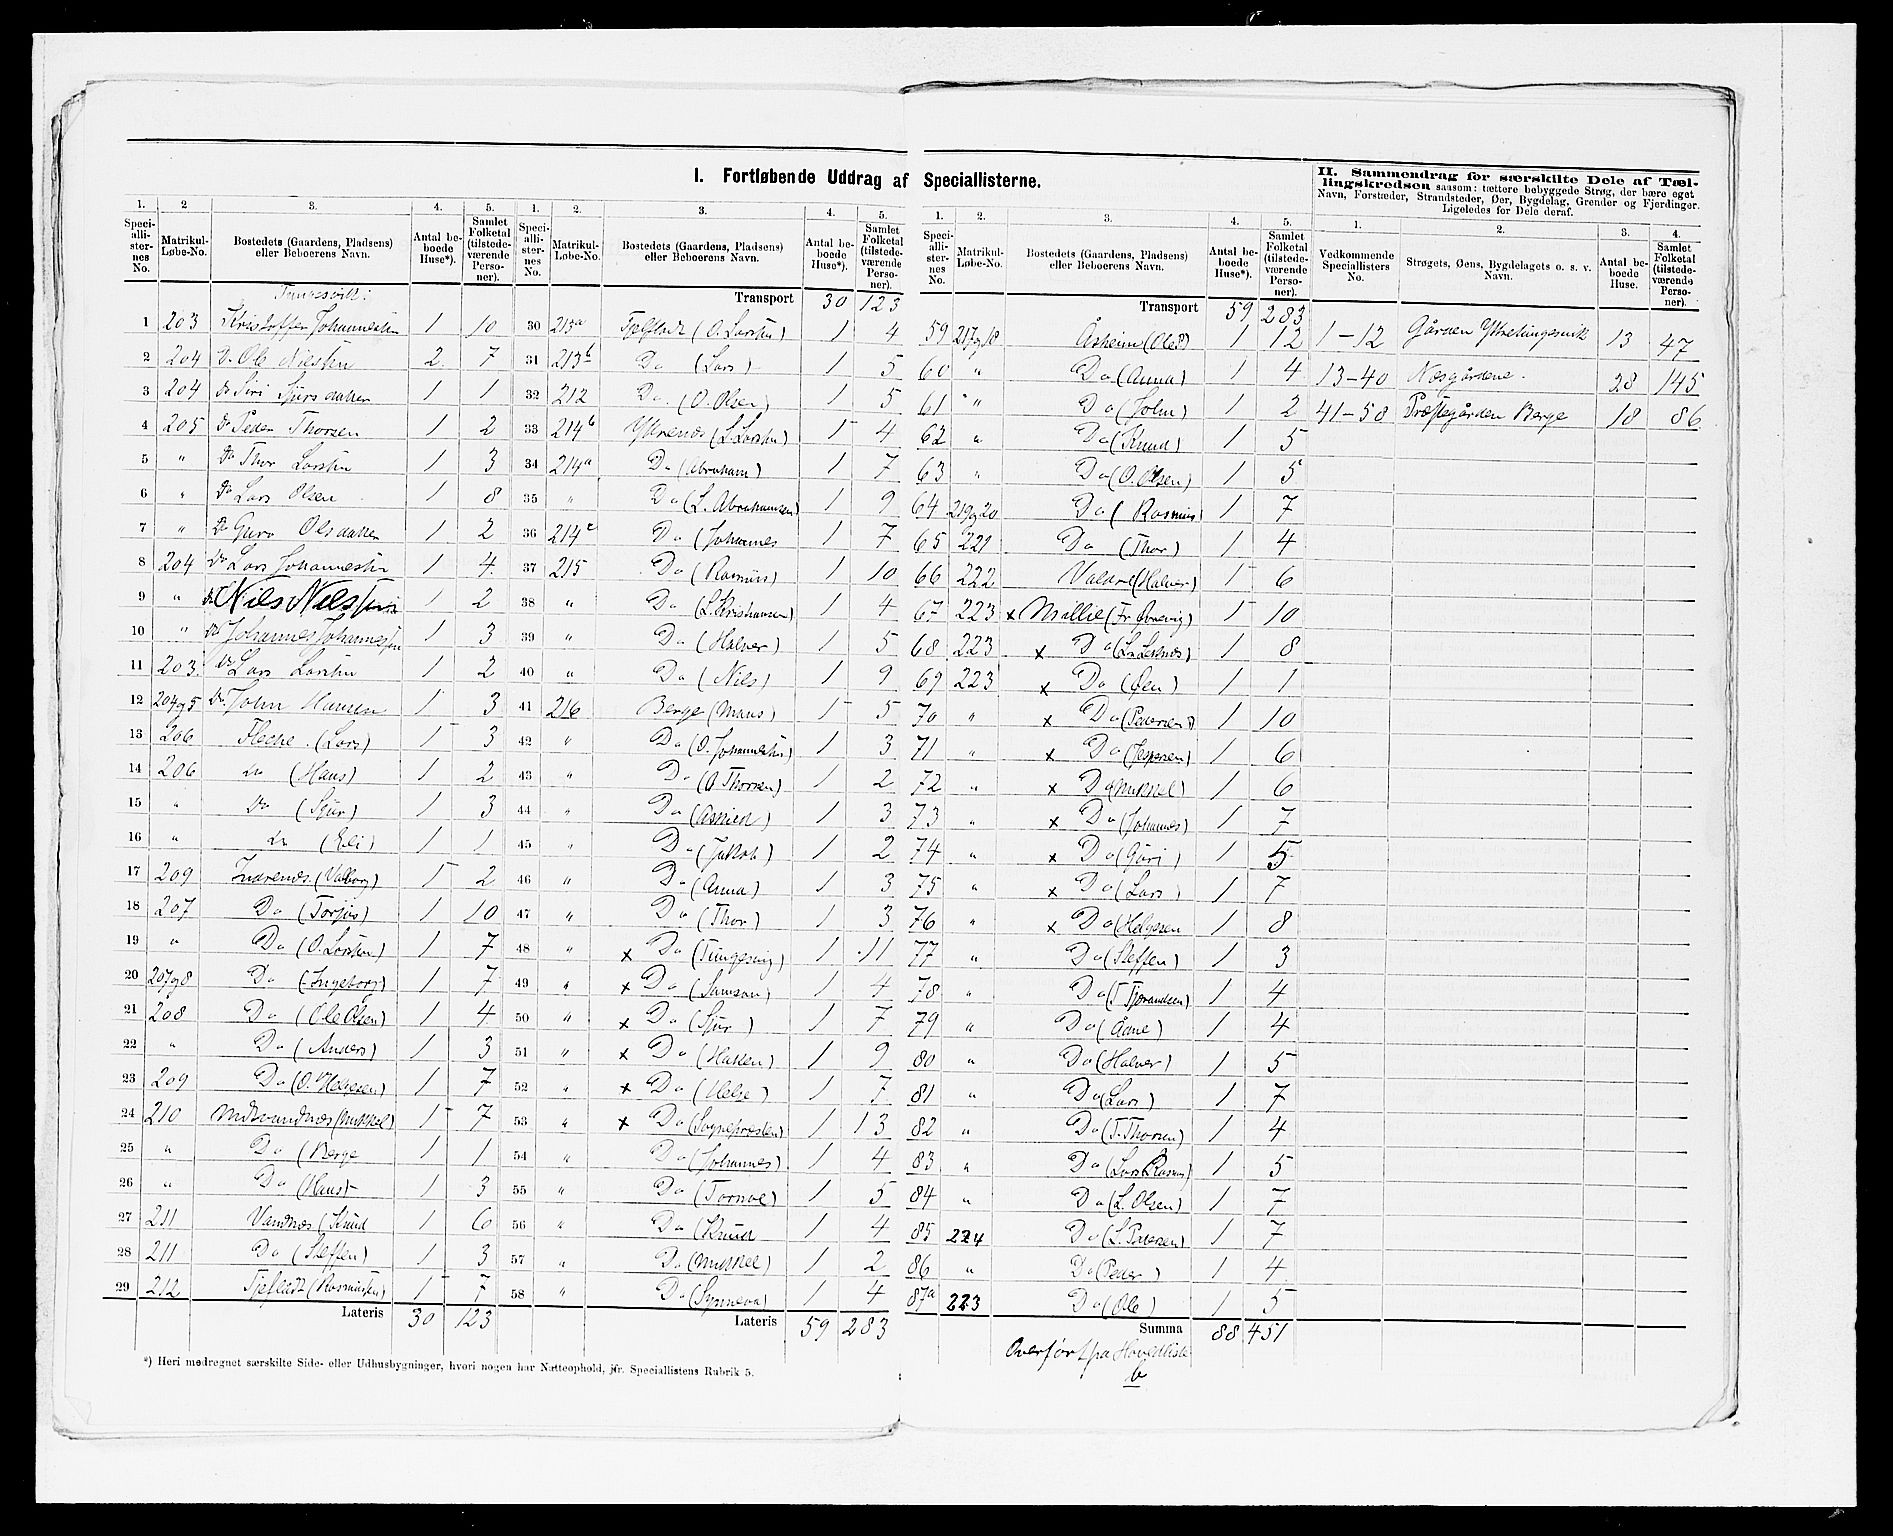 I. Fortløbende Uddrag af Speciallisterne.
II. Sammendrag for særskilte Dele af Tællingskredsen saasom: tættere bebyggede Strøg, der bære eget Navn, Forstæder, Strandsteder, Øer, Bygdelag, Grender og Fjerdinger. Ligeledes for Dele deraf.
1. 2 3. 4. 5.
Speciallisternes No. Matrikul-Løbe-No. Bostedets (Gaardens, Pladsens) eller Beboerens Navn. Antal beboede Huse*). Samlet Folketal (tilstedeværende Personer).
Tungesvik:
1 203 Kristoffer Johannesen 1 10
2 204 Do Ole Nielsen 2 7
3 204 Do Siri Sjursdatter 1 1
4 205 Do Peder Thorsen 1 2
5 " Do Thor Larsen 1 3
6 " Do Lars Olsen 1 8
7 " Do Guro Olsdatter 1 2
8 204 Do Lars Johannesen 1 4
9 " Do Nils Nilssen 1 2
10 " Do Johannes Johannessen 1 3
11 203 Do Lars Larsen 1 2
12 204og5 Do John Hansen 1 3
13 206 Fleche (Lars) 1 3
14 206 do (Hans) 1 2
15 " Do (Sjur) 1 3
16 " do (Eli) 1 1
17 209 Indrenæs (Valborg) 1 2
18 207 Do (Torjus) 1 10
19 " Do (O. Larsen) 1 7
20 207og8 Do (Ingeborg) 1 7
21 208 Do (Ole Olsen) 1 4
22 " Do (Anders) 1 3
23 209 Do (O. Helgesen) 1 7
24 210 Midtvandnæs (Mikkel) 1 7
25 " Do (Berge 1 1
26 " Do (Hans) 1 3
27 211 Vandnæs (Knud 1 6
28 211 Do (Steffen) 1 3
29 212 Tjefladt (Rasmussen) 1 7
Lateris 30 123
1. 2. 3. 4. 5.
Speciallisternes No. Matrikul-Løbe-No. Bostedets (Gaardens, Pladsens) eller Beboerens Navn. Antal beboede Huse*). Samlet Folketal (tilstedeværende Personer).
Transport 30 123
30 213a Tjefladt (O. Larsen) 1 4
31 213b Do (Lars) 1 5
32 212 Do (O. Olsen) 1 5
33 214b Ytrenæs (L. Larsen) 1 4
34 214a Do (Abraham) 1 7
35 " Do (L. Abrahamsen) 1 9
36 214c Do (Johannes 1 7
37 215 Do (Rasmus) 1 10
38 " Do (L. Kristiansen) 1 4
39 " Do (Halver) 1 5
40 " Do (Nils) 1 9
41 216 Berge (Mans) 1 5
42 " Do (O. Johannesen) 1 3
43 " Do (O Thorsen) 1 2
44 " Do 1 3
45 " Do (Jakob) 1 2
46 " Do (Anna) 1 3
47 " Do (Thor) 1 3
48 " x Do (Tungesvig) 1 11
49 " x Do (Samson) 1 4
50 " x Do (Sjur) 1 7
51 " x Do (Haken) 1 9
52 " x Do (Helge) 1 7
53 " x Do (Sognepresten) 1 13
54 " Do (Johannes) 1 4
55 " Do (Tornoe) 1 5
56 " Do (Knud 1 4
57 " Do (Mikkel) 1 2
58 " Do (Synneva) 1 4
Lateris 59 283
1. 2. 3. 4. 5.
Speciallisternes No. Matrikul-Løbe-No. Bostedets (Gaardens, Pladsens) eller Beboerens Navn. Antal beboede Huse*). Samlet Folketal (tilstedeværende Personer).
Transport 59 283
59 217og18 Åsheim (Ole) 1 12
60 " Do (Anna) 1 4
61 " Do (John) 1 2
62 " Do (Knud) 1 5
63 " Do (O. Olsen) 1 5
64 219og20 Do (Rasmus) 1 7
65 221 Do (Thor) 1 4
66 222 Valore (Halver) 1 6
67 223 x Millie (Fr. Øvrevig) 1 10
68 223 x Do 1 8
69 223 x Do (Øen) 1 1
70 " x Do (Pedersen) 1 10
71 " x Do (Jespersen) 1 6
72 " x Do (Mikkel) 1 6
73 " x Do (Johannes) 1 7
74 " x Do (Guri) 1 5
75 " x Do (Lars) 1 7
76 " x Do (Helgesen 1 8
77 " Do (Steffen) 1 3
78 " Do (T Tjerandsen) 1 4
79 " Do (Åane) 1 4
80 " Do (Halver) 1 5
81 " Do (Lars) 1 7
82 " Do (T. Thorsen) 1 4
83 " Do (Lars Rasmus) 1 5
84 " Do (L. Olsen) 1 7
85 224 Do (L. Petersen) 1 7
86 " Do (Peder) 1 4
87a 223 Do (Ole) 1 5
Summa 88 451
Overført fra Hovedliste
b
1. 2. 3. 4.
Vedkommende Speciallisters No. Strøgets, Øens, Bygdelagets o. s. v. Navn. Antal beboede Huse. Samlet Folketal (tilstedeværende Personer).
1-12 Gården Ytretungesvik 13 47
13-40 Næsgårdene 28 145
41-58 Præstegården Berge 18 86
*) Heri medregnet særskilte Side- eller Udhusbygninger, hvori nogen har Natteophold, jfr. Speciallistens Rubrik 5.